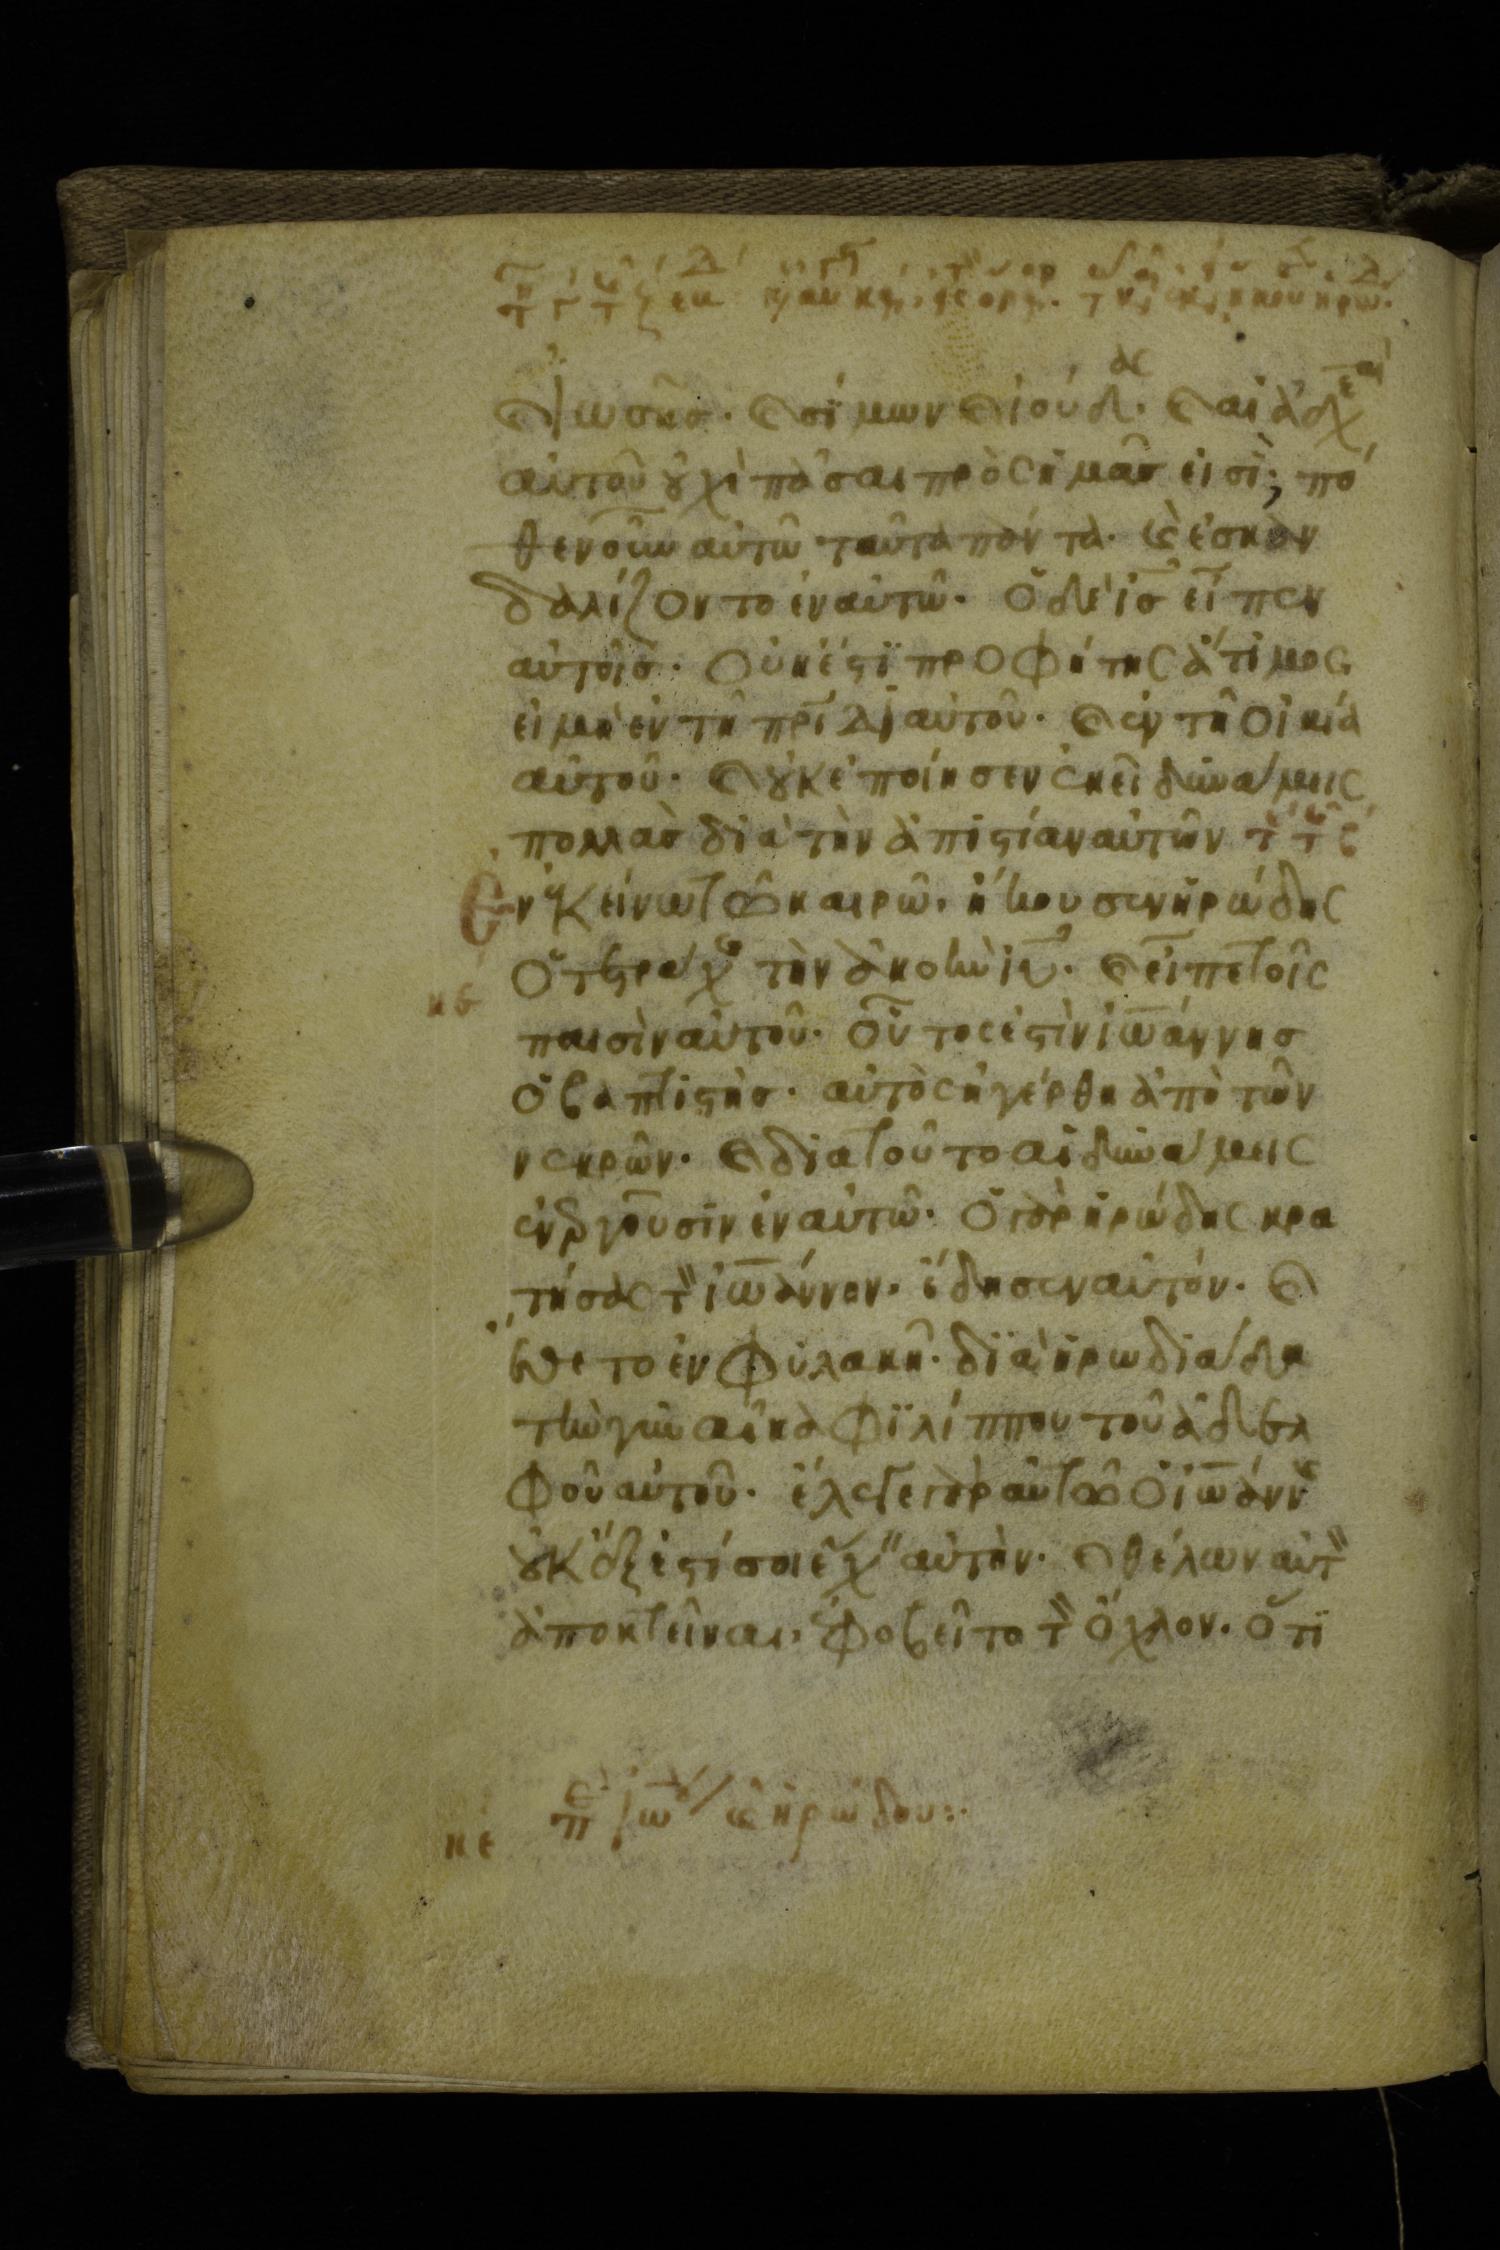 κ ἰωσῆσ. κ σίμων κ ἰούδας. κ αἱ ἀδελφαὶ
αὐτοῦ οὐχὶ πᾶσαι πρὸς ἡμᾶσ εἰσὶ; πό
θεν οὖν αὐτῶ ταῦτα πάντα. κ ἐσκαν
δαλίζοντο ἐν αὐτῶ. ὁ δὲ ἰσ εἶπεν
αὐτοῖσ. οὐκ ἔστι προφήτης ἄτιμος
εἰ μὴ ἐν τῆ πρίδι αὐτοῦ. κ ἐν τῆ οἰκία
αὐτοῦ. κ οὐκ ἐποίησεν ἐκεῖ δυνάμεις
πολλὰσ διὰ τὴν ἀπιστίαν αὐτῶν
Ἐν ἐκείνω τῶ καιρῶ. ἤκουσεν ἡρώδης
ὁ τετράρχης τὴν ἀκοὴν ἰυ. κ εἶπε τοῖς
κε
παισὶν αὐτοῦ. οὗτος ἐστὶν ἰωάννησ
ὁ βαπτιστὴσ. αὐτὸς ἠγέρθη ἀπὸ τῶν
νεκρῶν. κ διὰ τοῦτο αἱ δυνάμεις
ἐνεργοῦσιν ἐν αὐτῶ. ὁ γὰρ ἡρώδης κρα
τήσας τὸν ἰωάννην. ἔδησεν αὐτόν. κ
ἔθετο ἐν φυλακῆ. διὰ ἡρωδιάδα
τὴν γυναῖκα φιλίππου τοῦ ἀδελ
φοῦ αὐτοῦ. ἔλεγε γὰρ αὐτῶ ὁ ἰωάννης
οὐκ ἔξεστί σοι ἔχειν αὐτὴν. κ θέλων αὐτὸν
ἀποκτεῖναι. ἐφοβεῖτο τὸν ὄχλον. ὅτι
κε περὶ ἰωάννου κ ἡρώδου:.